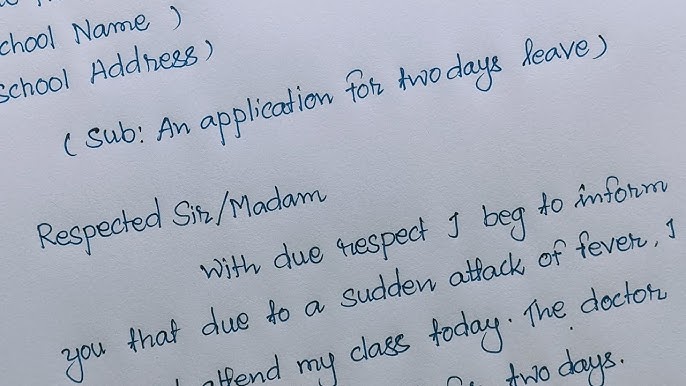 chool Name )
School Address)
(Sub: An application for two days leave)
Respected Sir/Madam
With due respect I beg to inform
you that due to a sudden attack of fever, I
attend my class today. The doctor
two days.